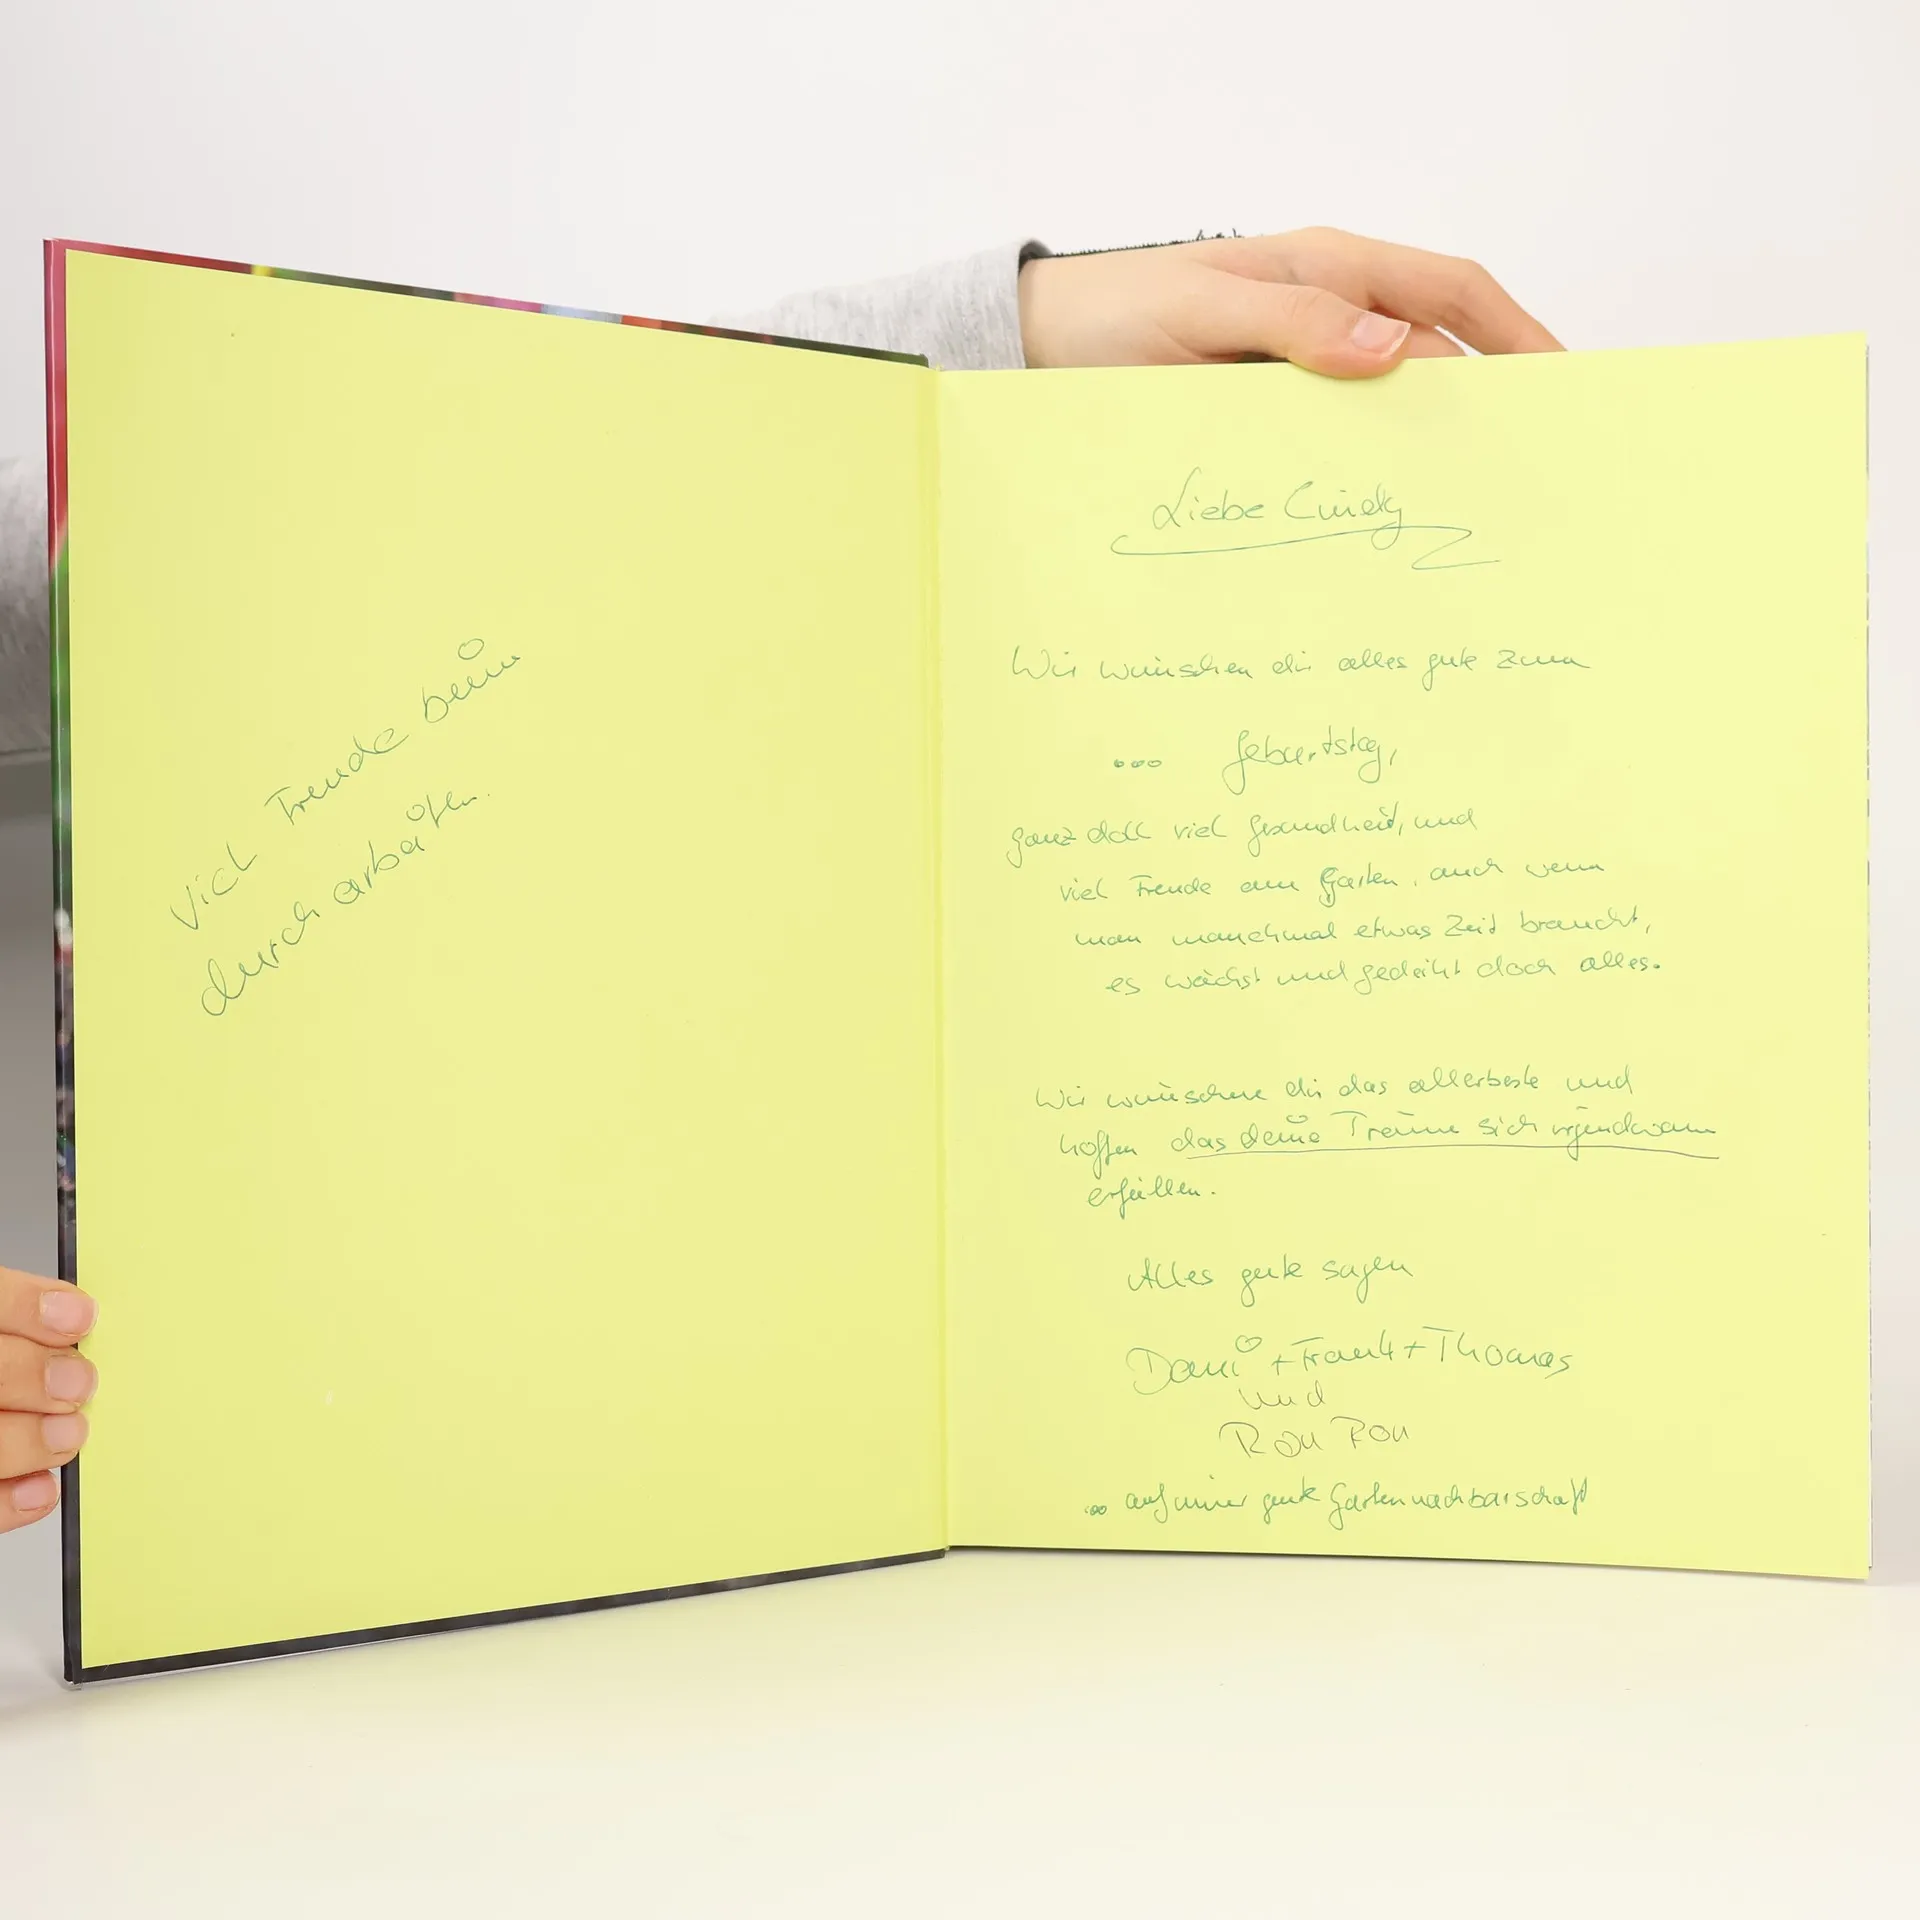 Viel Freude beim
durch arbeiten.
Liebe Cindy
Wir wünschen dir alles gute zum
... Geburtstag,
ganz doll viel Gesundheit, und
viel Freude am Garten, auch wenn
man manchmal etwas Zeit braucht,
es wächst und gedeiht doch alles.
Wir wünschen dir das allerbeste und
hoffen das deine Träume sich irgendwann
erfüllen.
Alles gute sagen
Dani + Frank + Thomas
und
Ron Ron
... auf immer gute Gartennachbarschaft